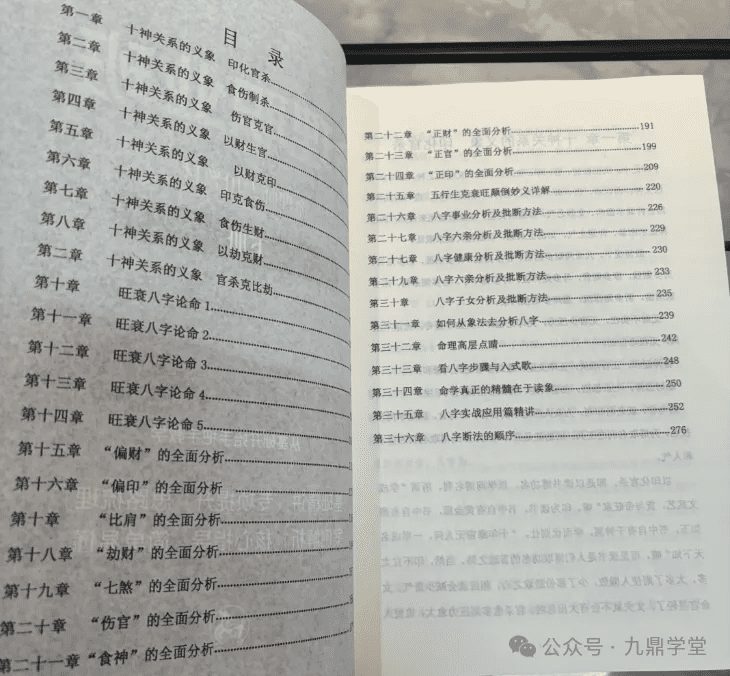 目 录
第一章 十神关系的义象 印化官杀
第二章 十神关系的义象 食伤制杀
第三章 十神关系的义象 伤官克官
第四章 十神关系的义象 以财生官
第五章 十神关系的义象 以财克印
第六章 十神关系的义象 印克食伤
第七章 十神关系的义象 食伤生财
第八章 十神关系的义象 以劫克财
第二章 十神关系的义象 官杀克比劫
第十章 旺衰八字论命 1
第十一章 旺衰八字论命 2
第十二章 旺衰八字论命 3
第十三章 旺衰八字论命 4
第十四章 旺衰八字论命 5
第十五章 “偏财”的全面分析
第十六章 “偏印”的全面分析
第十章 “比肩”的全面分析
第十八章 “劫财”的全面分析
第十九章 “七煞”的全面分析
第二十章 “伤官”的全面分析
第二十一章 “食神”的全面分析
第二十二章 “正财”的全面分析 191
第二十三章 “正官”的全面分析 199
第二十四章 “正印”的全面分析 209
第二十五章 五行生克衰旺颠倒妙义详解 220
第二十六章 八字事业分析及批断方法 226
第二十七章 八字六亲分析及批断方法 229
第二十七章 八字健康分析及批断方法 230
第二十九章 八字六亲分析及批断方法 233
第三十章 八字子女分析及批断方法 235
第三十一章 如何从象法去分析八字 239
第三十二章 命理高层点睛 242
第三十三章 看八字步骤与入式歌 248
第三十四章 命学真正的精髓在于读象 250
第三十五章 八字实战应用篇精讲 252
第三十六章 八字断法的顺序 276
公众号·九鼎学堂